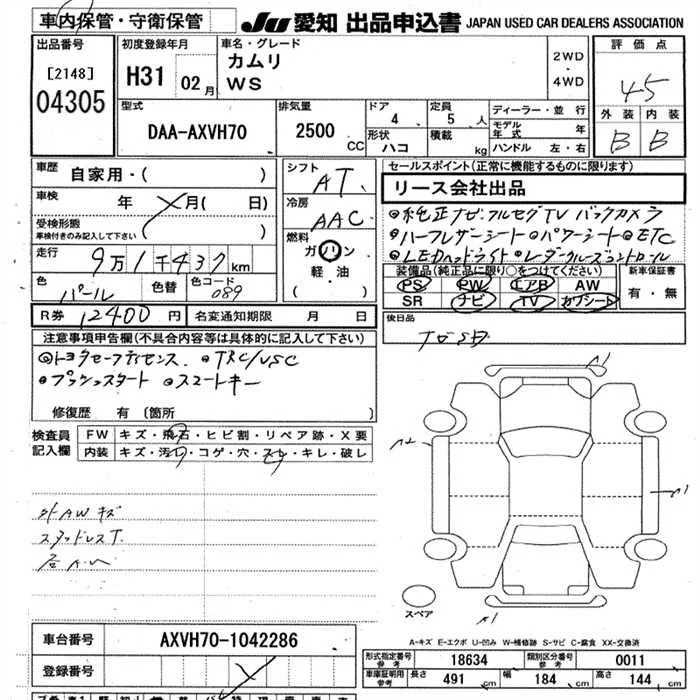 車内保管・守衛保管
JU 愛知 出品申込書 JAPAN USED CAR DEALERS ASSOCIATION
出品番号
[2148]
04305
初度登録年月
H31 02月
車名・グレード
カムリ
WS
2WD
・
4WD
評価点
45
外装 内装
B B
型式
DAA-AXVH70
排気量
2500 CC
ドア
4
定員
5 人
形状
ハコ
積載
kg
ディーラー・並行
モデル年式 年
ハンドル 左・右
車歴
自家用・( )
車検
年 月(日)
受検形態
車検付きのみ記入して下さい
走行
9万1千437km
色
パール
色替
色コード
089
R券 12400円
名変通知期限 月 日
シフト
AT
冷房
AAC
燃料
ガソリン
軽・油
( )
セールスポイント(正常に機能するものに限ります)
リース会社出品
◎純正ナビ.フルセグTV バックカメラ
◎ハーフレザーシート ◎パワーシート ◎ETC
◎LEDヘッドライト ◎レーダークルーズコントロール
装備品(純正品に限り○をつけてください)
PS PW エアB AW
SR ナビ TV カワシート
新車保証書
有・無
後日品
注意事項申告欄(不具合内容等は具体的に記入して下さい)
◎トヨタセーフティセンス. ◎TRC/VSC
◎プッシュスタート ◎スマートキー
修復歴 有 〔箇所
検査員
記入欄
FW キズ・飛石・ヒビ割・リペア跡・X要
内装 キズ・汚れ・コゲ・穴・スレ・キレ・破レ
外AWキズ
スタッドレスT.
A1
A2
A1
A1
スペア
A-キズ E-エクボ U-凹み W-補修跡 S-サビ C-腐食 XX-交換済
車台番号 AXVH70-1042286
登録番号
形式指定番号
参考
18634
類別区分番号
参考
0011
車庫証明用
参考
長さ 491 cm 幅 184 cm 高さ 144 cm